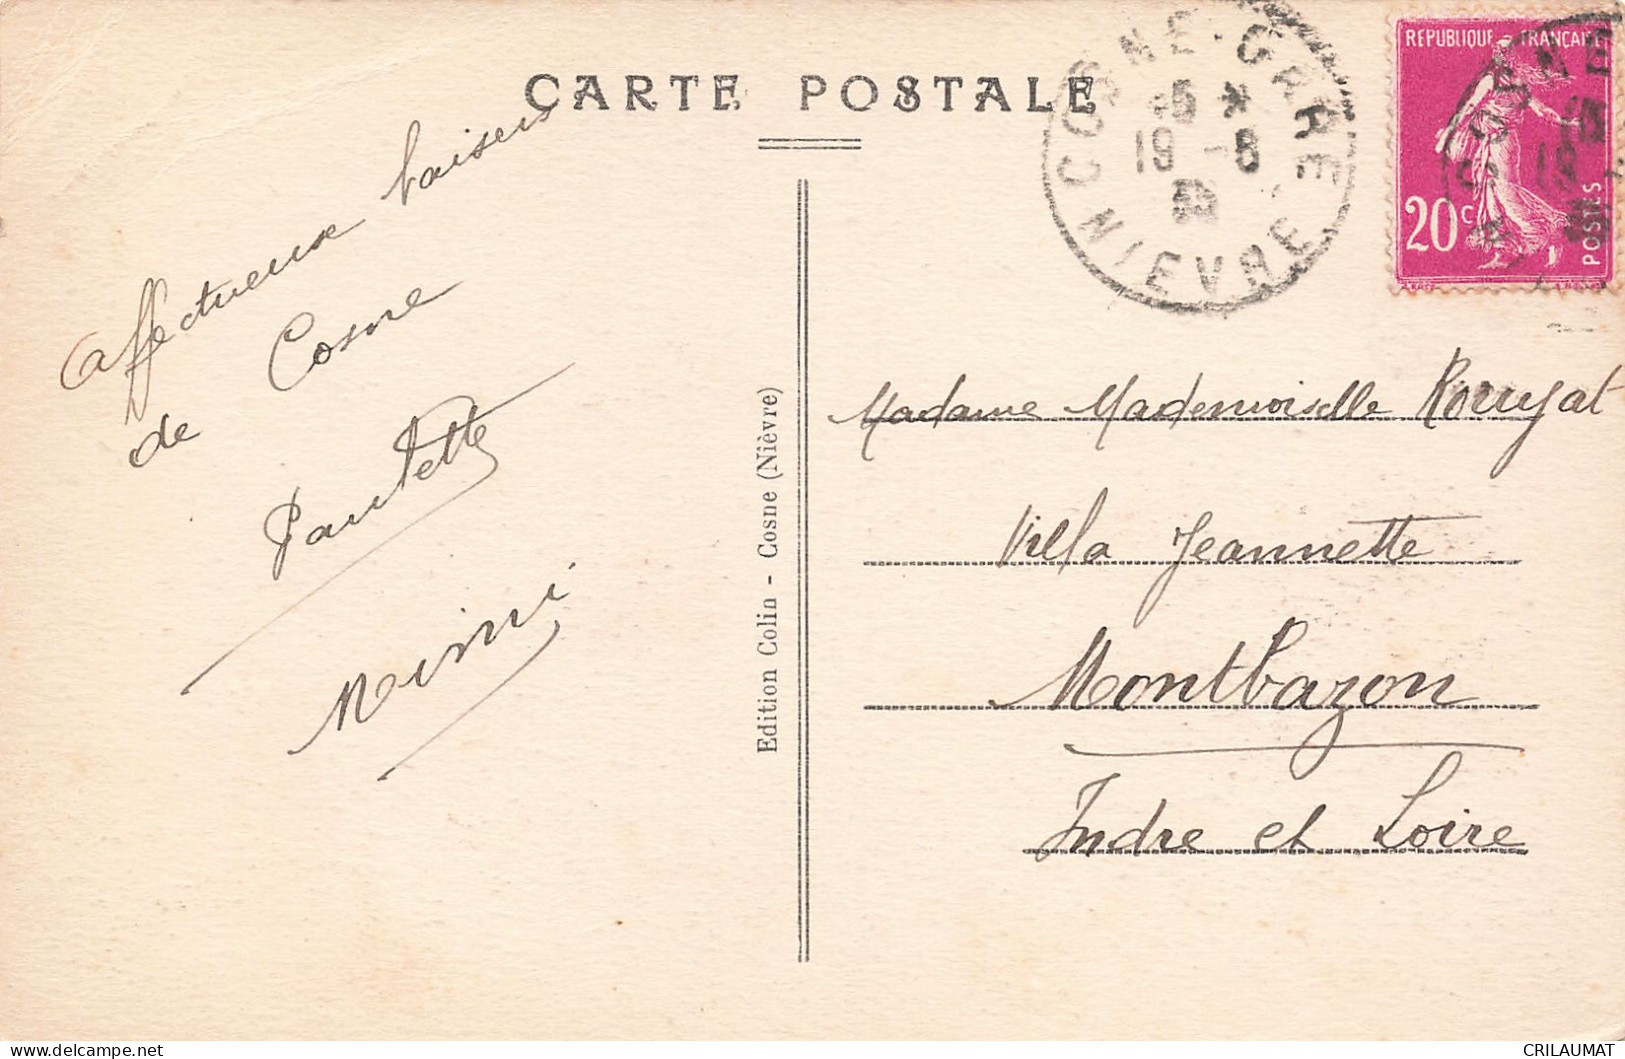 CARTE POSTALE
COSNE-GARE
15 *
19 -8
NIEVRE
REPUBLIQUE FRANÇAISE
20c
POSTES
Affectueux baisers
de Cosne
Paulette
Mimi
Edition Colin - Cosne (Nièvre)
Madame Mademoiselle Rouyat
Villa Jeannette
Montbazon
Indre et Loire
CRILAUMAT